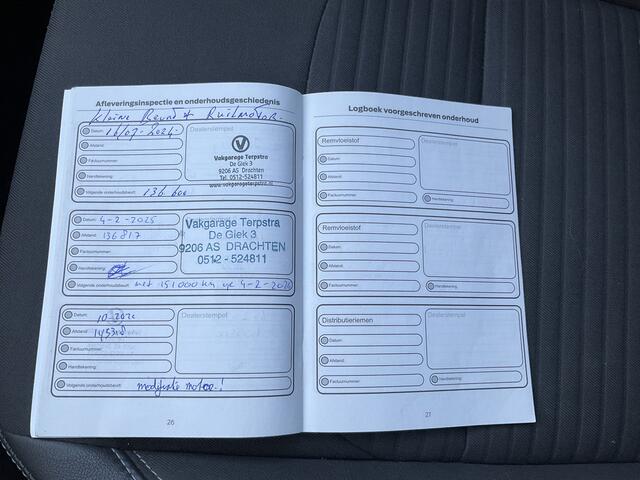 Afleveringsinspectie en onderhoudsgeschiedenis
Kleine Beurt + Ruitmotor.
Datum: 16/07-2024
Dealerstempel
Afstand:
Factuurnummer:
Handtekening:
Volgende onderhoudsbeurt: 136.600
Vakgarage Terpstra
De Giek 3
9206 AS Drachten
Tel. 0512-524811
www.vakgarageterpstra.nl
Datum: 4-2-2025
Afstand: 136817
Factuurnummer:
Handtekening:
Volgende onderhoudsbeurt: met 151.000 km 4-2-2026
Vakgarage Terpstra
De Giek 3
9206 AS DRACHTEN
0512 - 524811
Datum:
Dealerstempel
Afstand:
Factuurnummer:
Handtekening:
Volgende onderhoudsbeurt:
26
Logboek voorgeschreven onderhoud
Remvloeistof
Dealerstempel
Datum:
Afstand:
Factuurnummer:
Handtekening:
Remvloeistof
Dealerstempel
Datum:
Afstand:
Factuurnummer:
Handtekening:
Distributieriemen
Dealerstempel
Datum:
Afstand:
Factuurnummer:
Handtekening:
27